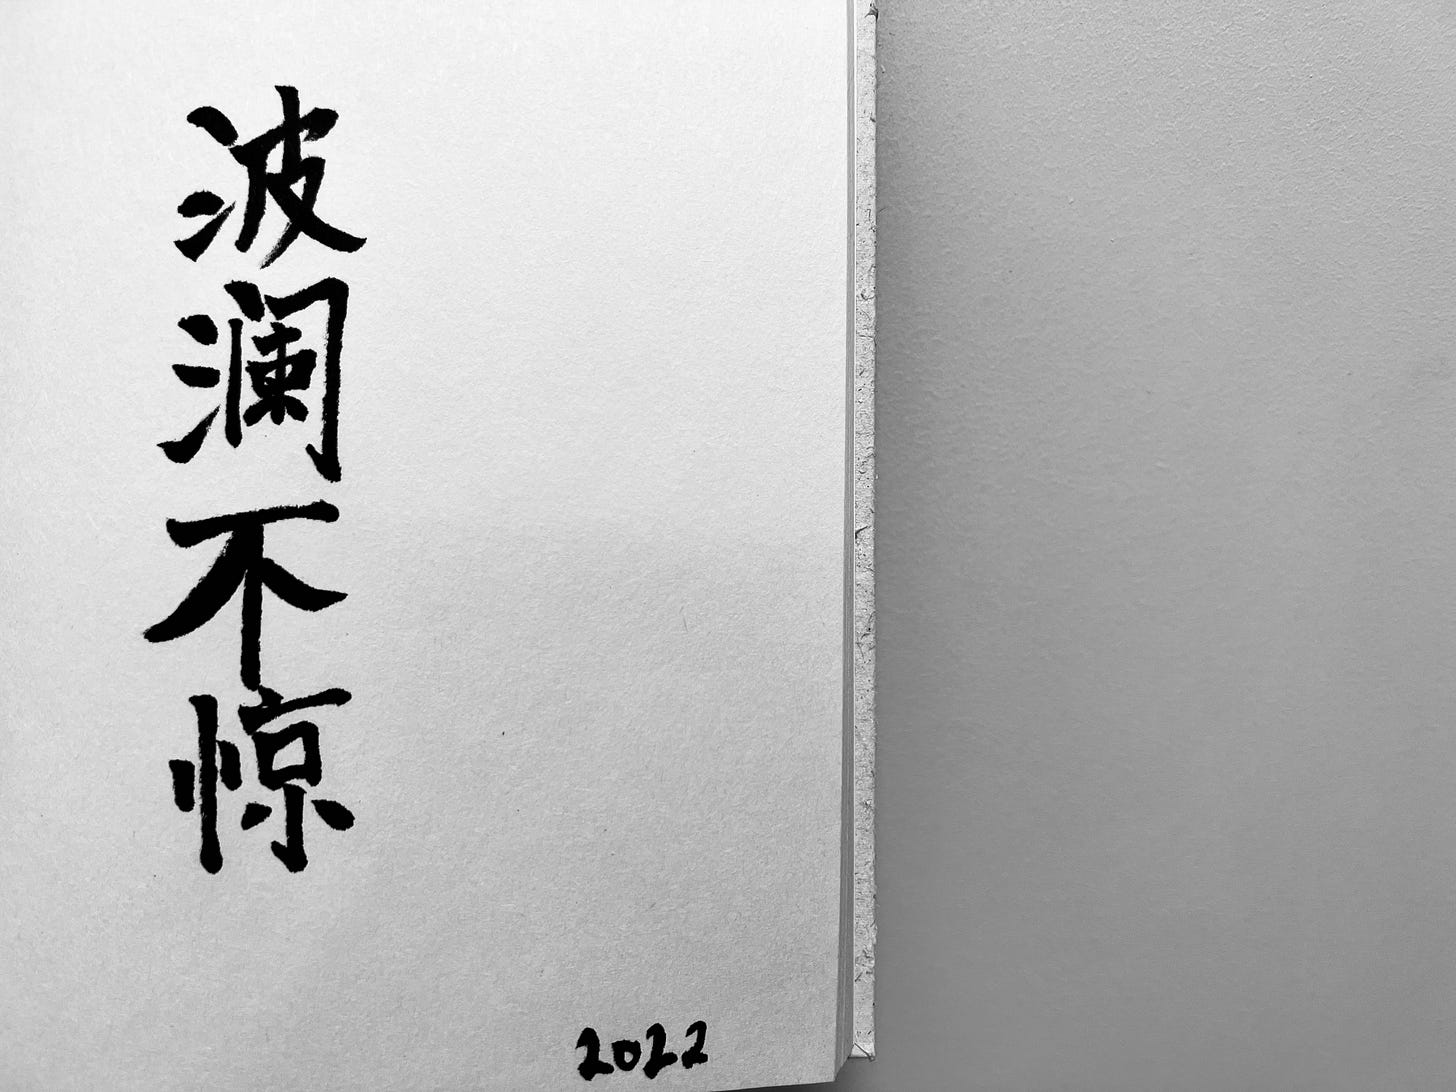 波澜不惊
2022